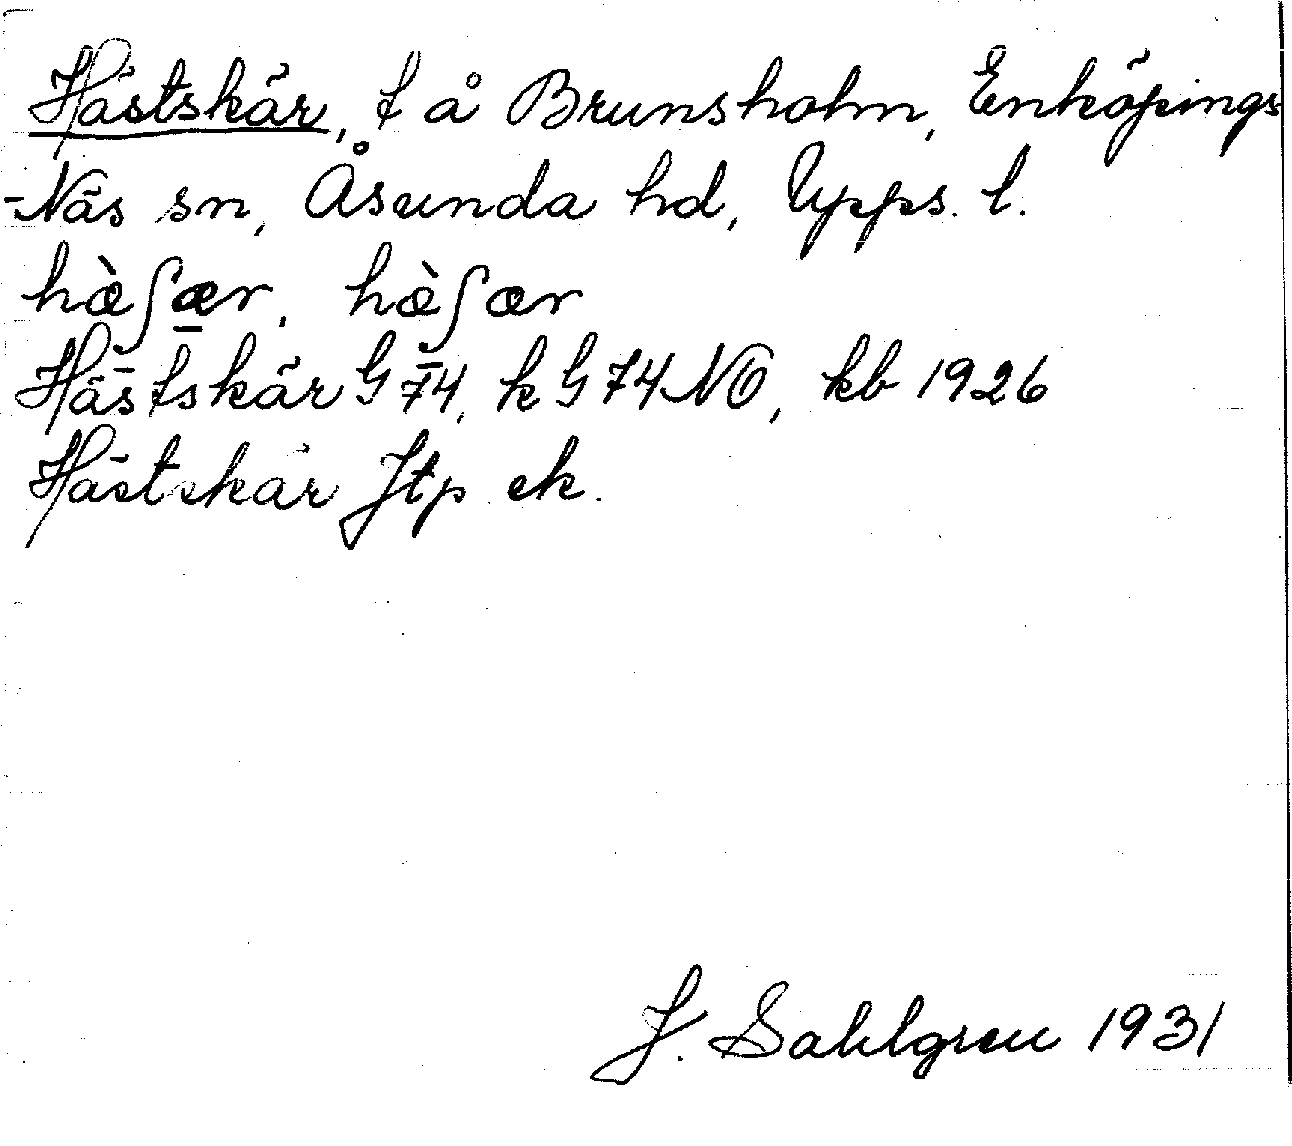 Hästskär, t å Brunsholm, Enköpings
-Näs sn, Åsunda hd, Upps. l.
hæ̀ʃæ̠r, hæ̀ʃ̠ær
Hästskär G 74, k G 74 NO, kb 1926
Hästskär Jtp ek.
J. Sahlgren 1931